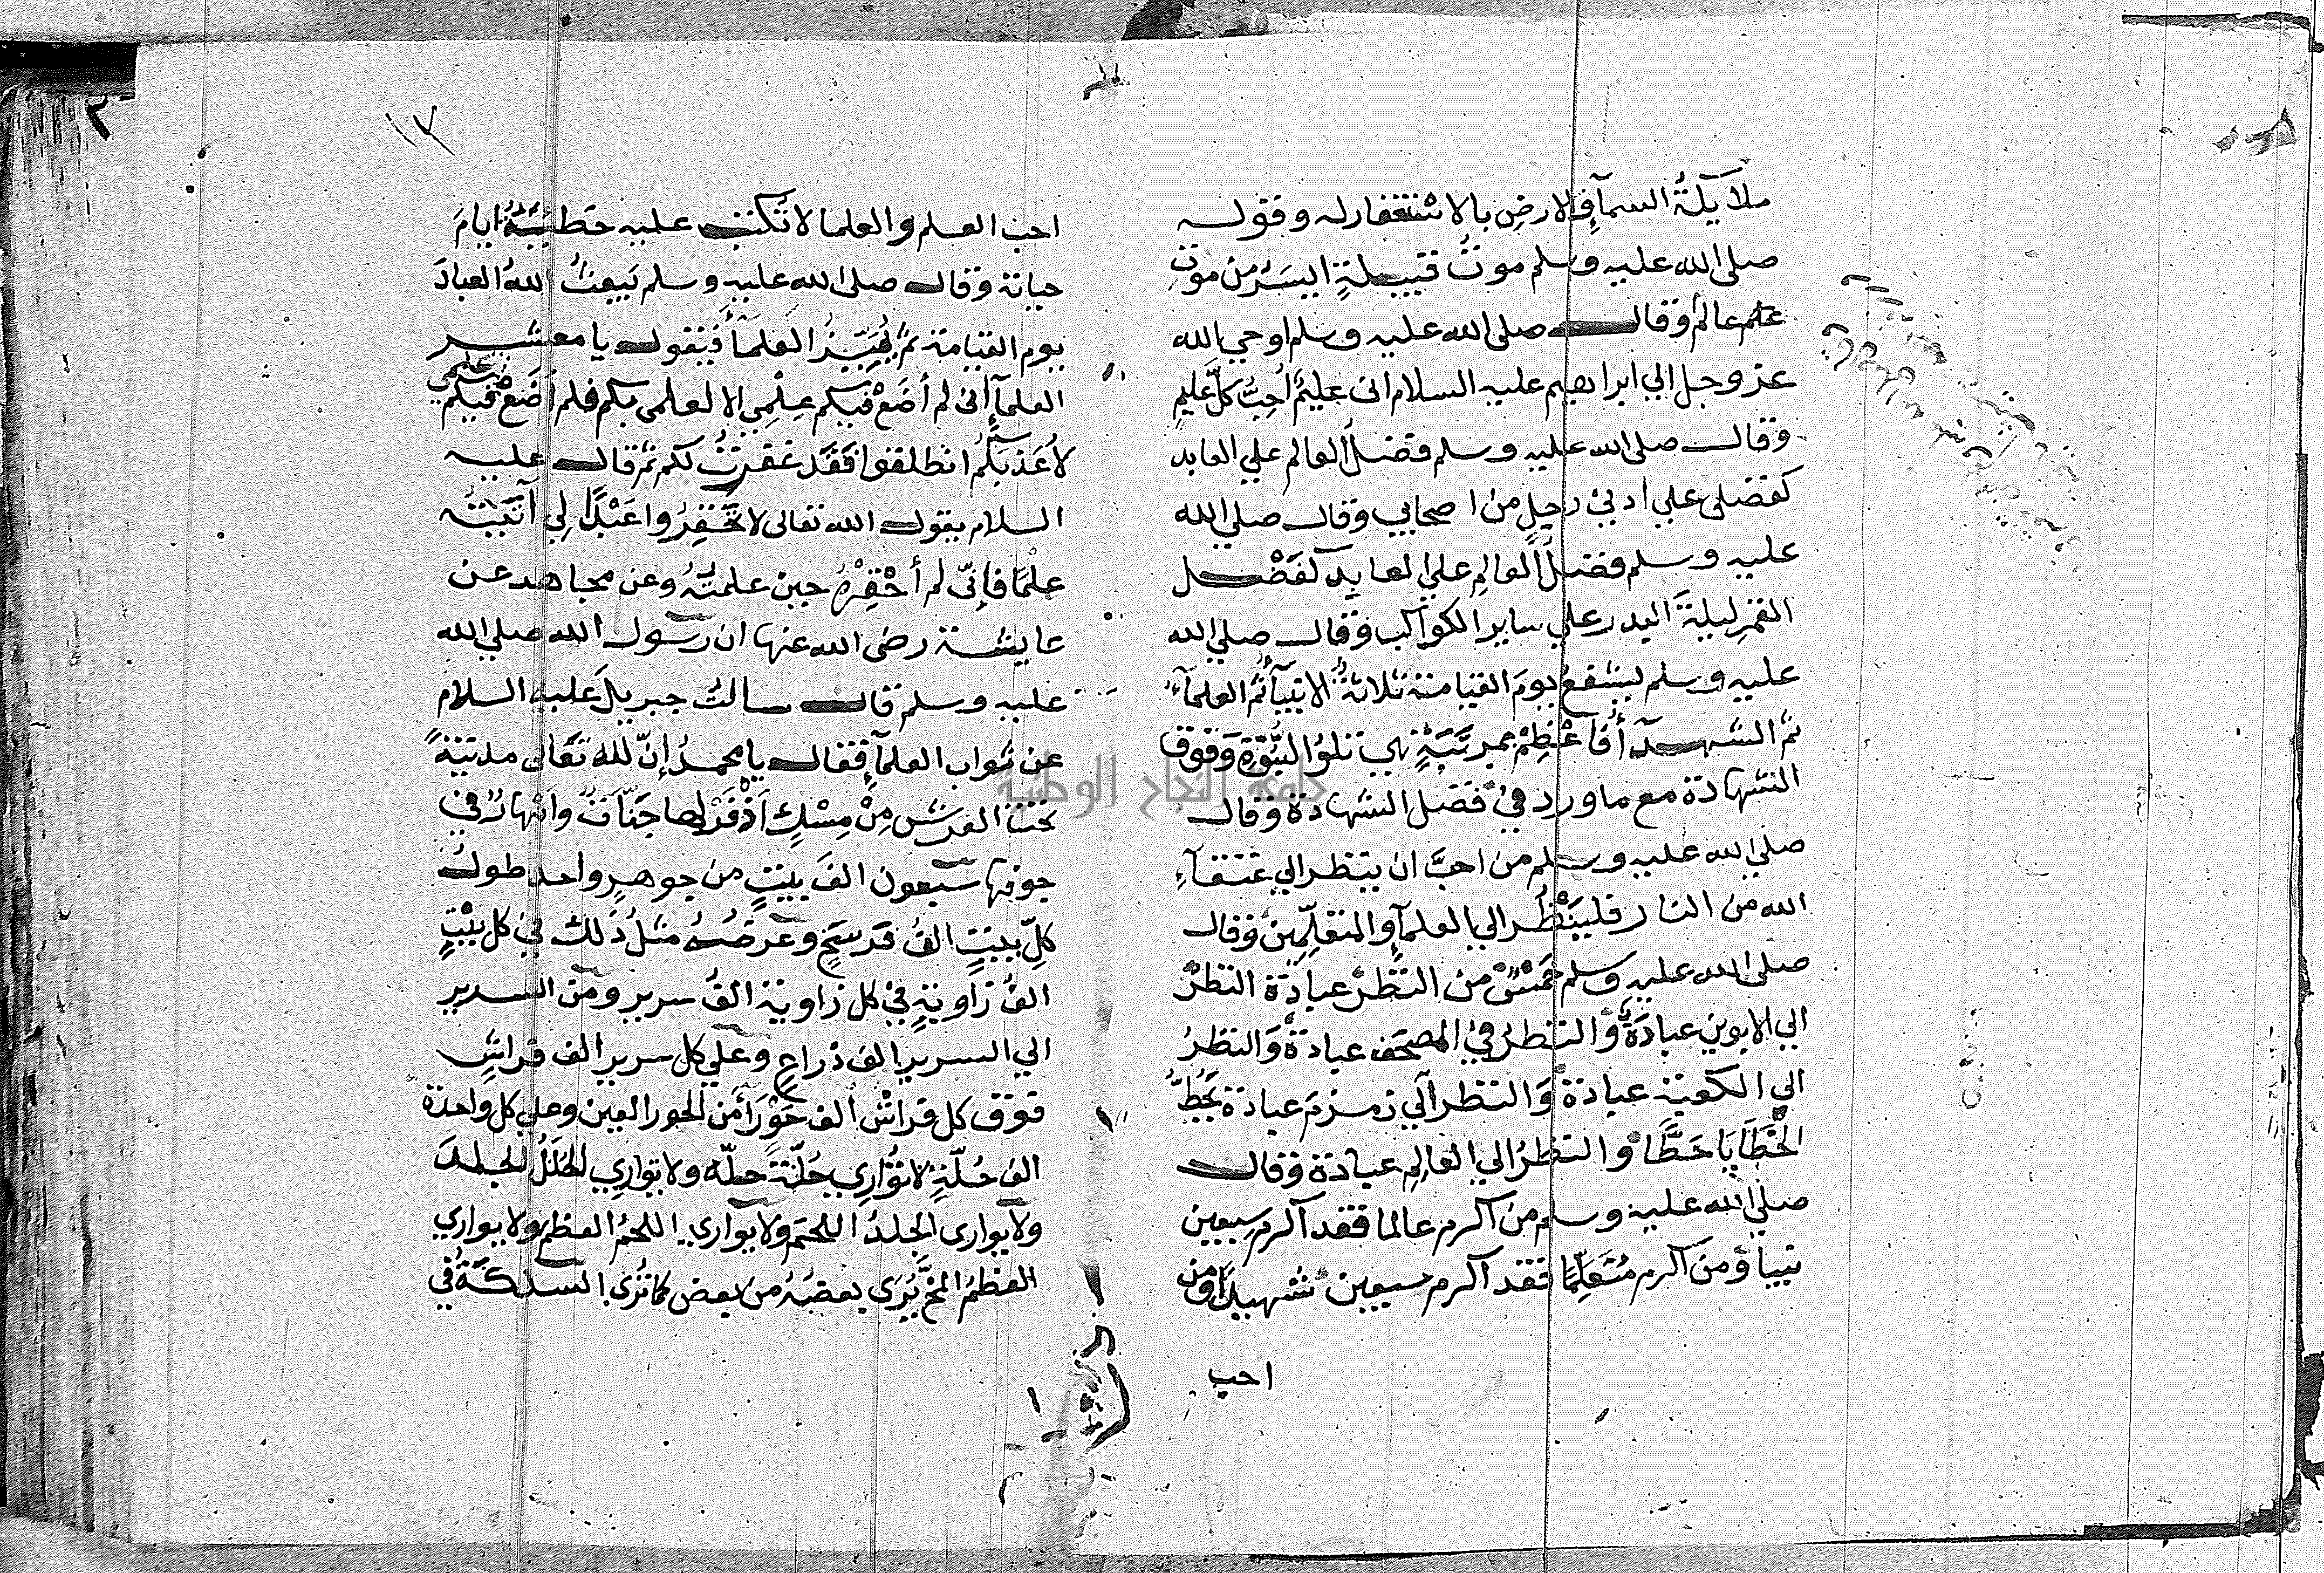 ملايكة السمآء والارض بالاستغفار له وقوله
صلى الله عليه وسلم موتُ قبيلةٍ ايسرُ من موت
عالم وقال صلى الله عليه وسلم اوحي الله
عز وجل الي ابراهيم عليه السلام انى عليمٌ اُحِبُّ كلَّ عليمٍ
وقال صلى الله عليه وسلم فضلُ العالم علي العابد
كفضلى علي ادنىٰ رجلٍ من اصحابي وقال صلي الله
عليه وسلم فضلُ العالِمِ علي العابِد كَفَضْل
القمرِ ليلةَ البدر علي ساير الكواكب وقال صلي الله
عليه وسلم ليشفع يومَ القيامة ثلاثةٌ الانبيآُ ثُم العلمآءُ
ثُم الشهدآُ فأعْظِمْ بمرتَبَةٍ هي تلوُ النُّبُوَّةِ وَفوق
الشهادة مع ما ورد فيْ فضل الشهادة وقال
صلي الله عليه وسلم من احبَّ ان ينظر الي عتقآءِ
الله من النار فليَنْظُر الي العلمآءِ والمتعلِّمين وقال
صلى الله عليه وسلم خمْسٌ من النَّظَرْ عبادة النظرُ
الي الابوين عبادَةٌ والنظرُ فيْ المصحَف عبادةٌ وَالنظرُ
الي الكعبة عبادة وَالنظر الي زمزم عبادة يَحُطُّ
الخَطَايَا حَطًّا والنظرُ الي العالِم عبادة وقال
صلي الله عليه وسلم من اكرم عالما فقد اكرم سبعين
نبيا ومن اكرم مُتَعَلِّمًا فقد اكرم سبعين شهيدًا ومن
احب
١٢
احب العلم والعلما لا تُكتب عليه خطيئَةٌ ايامَ
حياتة وقال صلى الله عليه وسلم يَبعثُ اللهُ العبادَ
يوم القيامة ثُم يُمَيِّزُ العُلَمَآءَ فيقول يا معشر
العلمآءِ انى لم أضَعْ فيكم عِلْمِي الا لعلمى بكم فلم أضَعْ فيكم
علمي
لأُعَذِبَكُم انطلقوا فقَد غفرتُ لكم ثم قال عليه
السلام يقول الله تعالى لا تحْقِرُوا عَبْدًا لِي آتَيتُه
عِلْمًا فإنّى لم أحْقِرْهُ حين علمتُهُ وعن مجاهد عن
عايشة رضى الله عنها ان رسول الله صلي الله
عليه وسلم قال سالتُ جبريلَ عليه السلام
عن ثواب العلمآءِ فقال يا محمدُ إنّ لله تعَالى مدينةً
تحت العرش مِنْ مِسْكٍ اَذْفَرَ لها جَنّاتٌ وانهارٌ في
جوفها سبعون الفَ بيتٍ من جوهرٍ واحد طولُ
كلِّ بيتٍ الفُ فرسخٍ وعرضُهُ مثلُ ذَلك فيْ كل بيْتٍ
الفُ زاويةٍ فيْ كل زاوية الفُ سرير ومن السرير
الي السرير الف ذراعٍ وعلي كل سريرٍ الف فراشٍ
فوق كل فراشٍ الف حَوْرَآَ من الحور العين وعلي كل واحدة
الف حُلّةٍ لا تُوَارِي حُلّةٌ حلّه ولا يوارِي الحُلَلُ الجلدَ
ولا يوارى الجلدُ اللحمَ ولا يواري اللحمُ العظمَ ولا يواري
العظمُ المخَّ يُرَى بعضُهُ من بعض كما تُرَى السمكةُ في
جامعة النجاح الوطنية